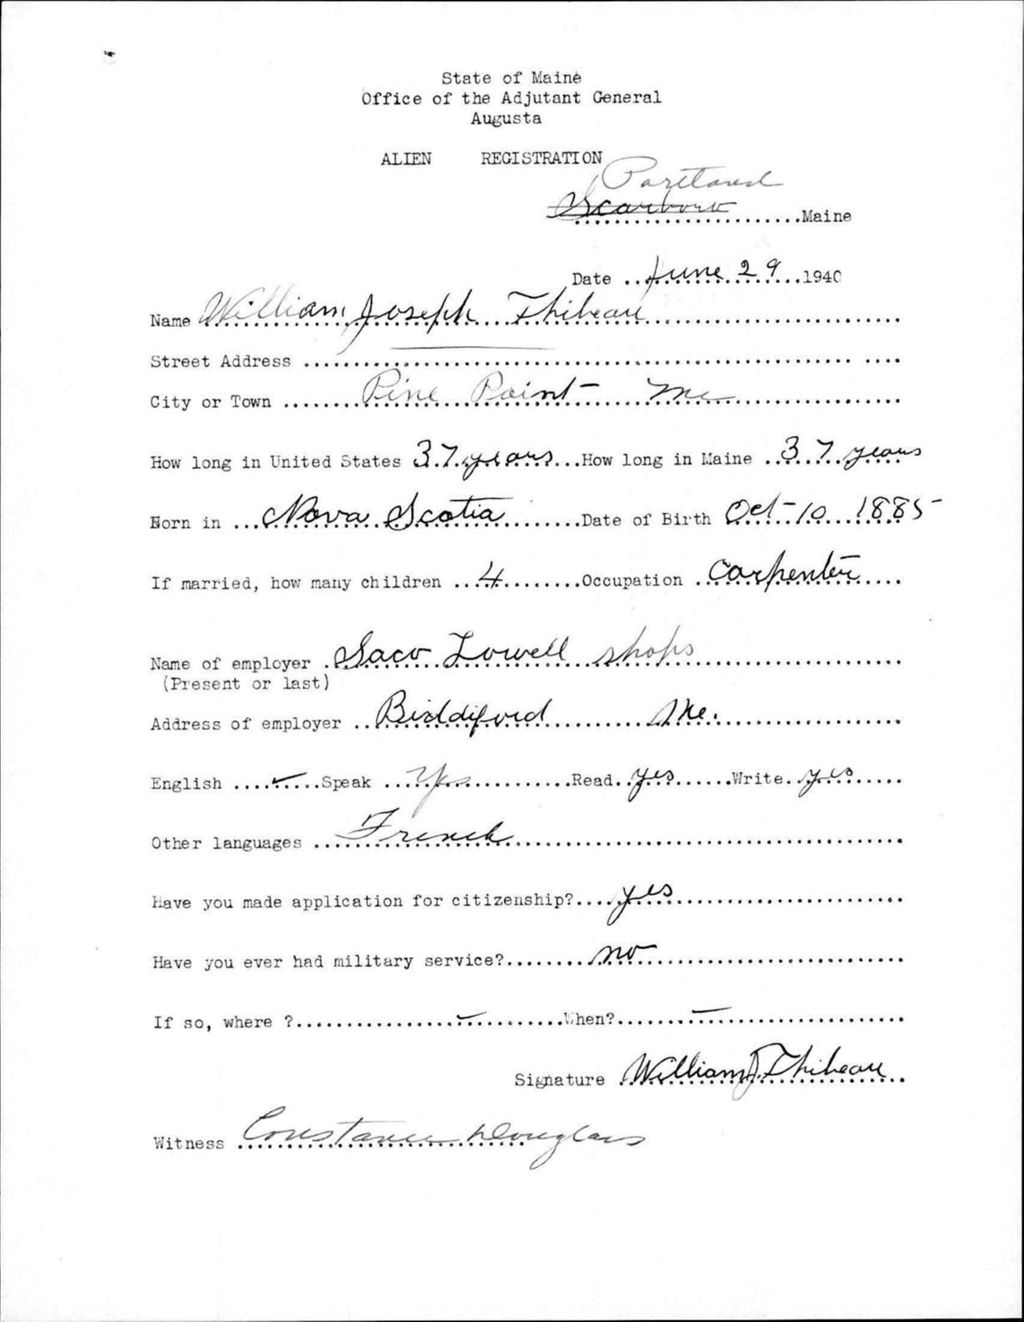 State of Maine
Office of the Adjutant General
Augusta
ALIEN REGISTRATION
Portland
Scarboro Maine
Date June 29 1940
Name William Joseph Thibeau
Street Address
City or Town Pine Point Me
How long in United States 37 years How long in Maine 37 years
Born in Nova Scotia Date of Birth Oct-10 1885
If married, how many children 4 Occupation Carpenter
Name of employer Saco Lowell shops
(Present or last)
Address of employer Biddiford Me.
English ✓ Speak Yes Read yes Write yes
Other languages French
Have you made application for citizenship? yes
Have you ever had military service? no
If so, where ? – When? –
Signature William J. Thibeau
Witness Constance Douglass